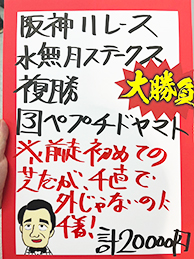 阪神11レース
水無月ステークス
複勝
大勝負
③ペプチドヤマト
※前走初めての
芝だが、千直で
外じゃないの人
4着!
計20000円